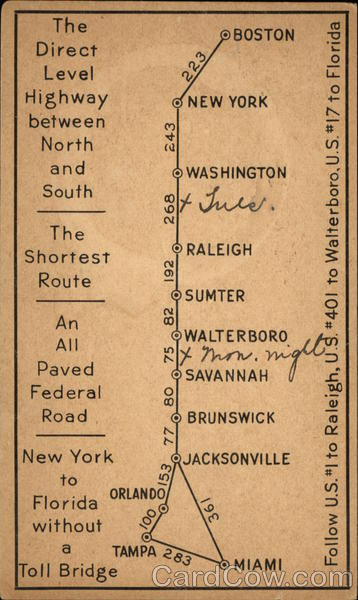 The
Direct
Level
Highway
between
North
and
South
The
Shortest
Route
An
All
Paved
Federal
Road
New York
to
Florida
without
a
Toll Bridge
BOSTON
223
NEW YORK
243
WASHINGTON
268
x Tues.
RALEIGH
192
SUMTER
82
WALTERBORO
75
x Mon. night
SAVANNAH
80
BRUNSWICK
77
JACKSONVILLE
153
361
ORLANDO
100
TAMPA
283
MIAMI
Follow U.S.#1 to Raleigh, U.S.#401 to Walterboro, U.S.#17 to Florida
CardCow.com